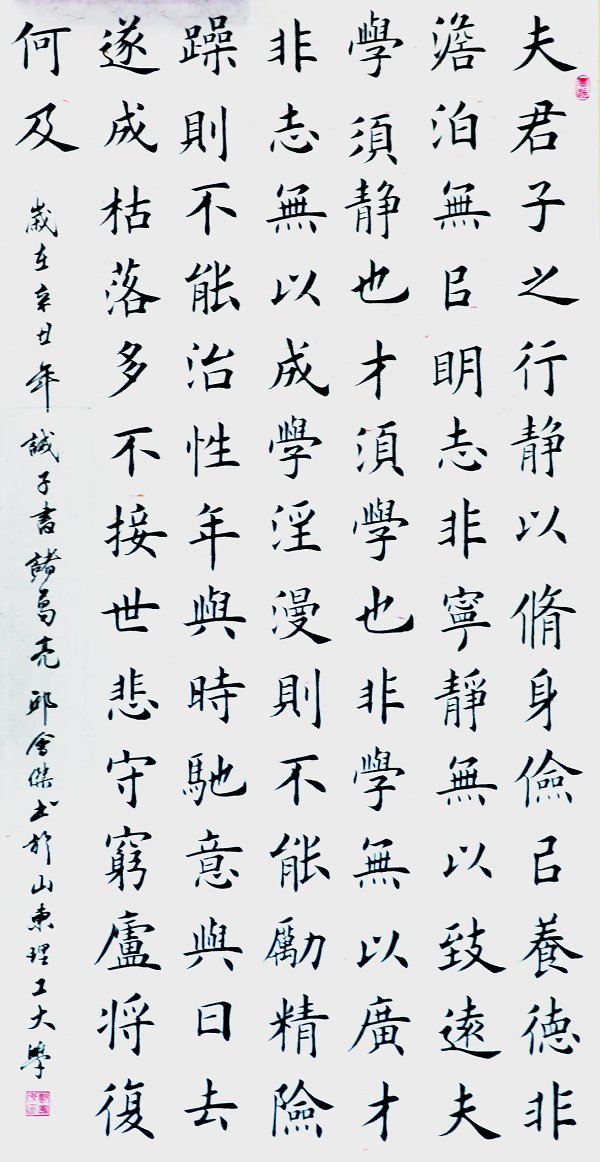 夫君子之行静以脩身儉㠯養德非
澹泊無㠯明志非寧静無以致遠夫
學須静也才須學也非學無以廣才
非志無以成學淫漫則不能勵精險
躁則不能治性年與時馳意與日去
遂成枯落多不接世悲守窮廬将復
何及
歲在辛丑年誡子書諸葛亮邱會傑书於山東理工大學